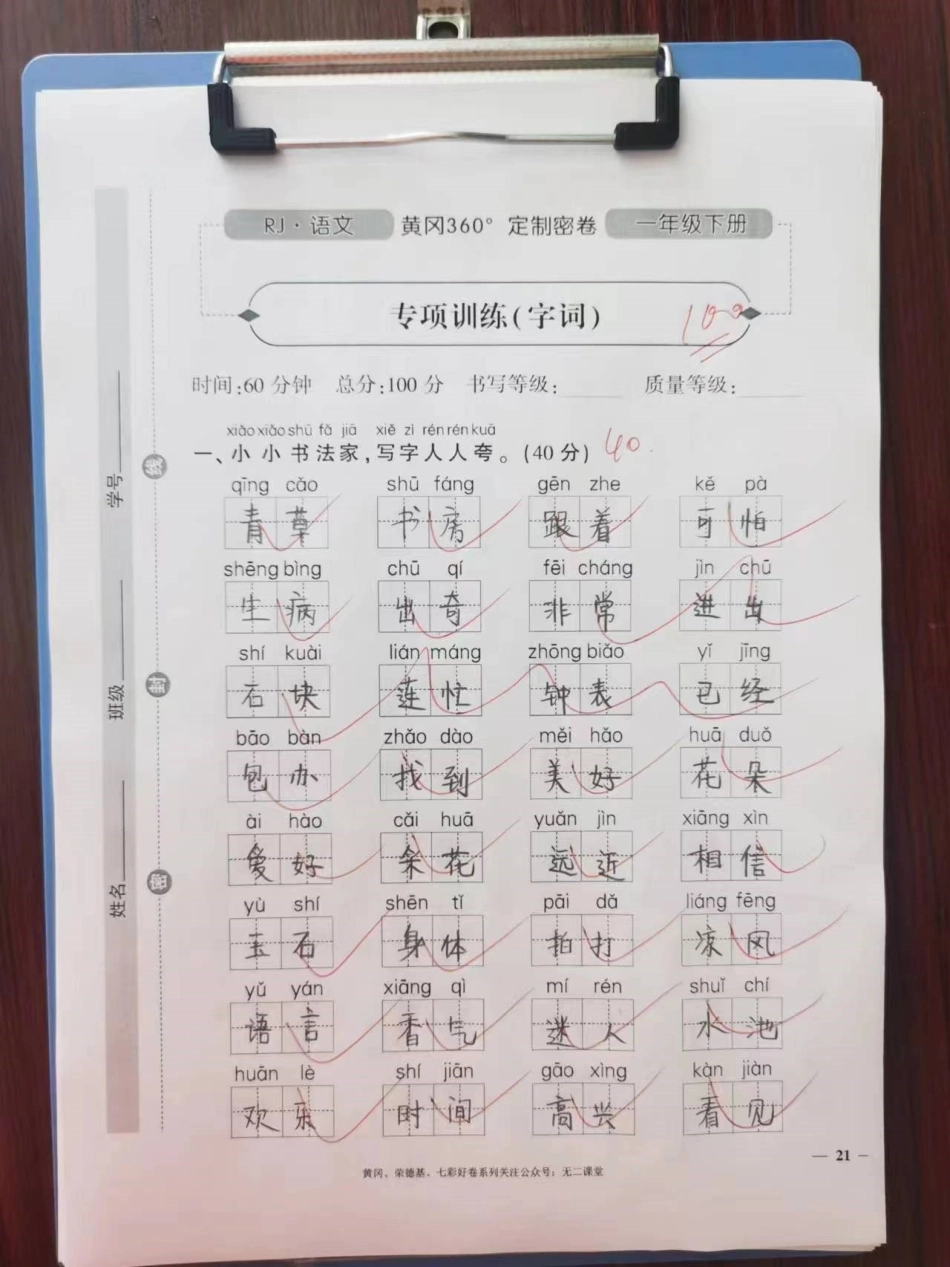 RJ·语文 黄冈360° 定制密卷 一年级下册
专项训练(字词)
100
时间:60分钟 总分:100分 书写等级:______ 质量等级:______
xiǎo xiǎo shū fǎ jiā xiě zì rén rén kuā
一、小小书法家,写字人人夸。(40分) 40
qīng cǎo shū fáng gēn zhe kě pà
青草 书房 跟着 可怕
shēng bìng chū qí fēi cháng jìn chū
生病 出奇 非常 进出
shí kuài lián máng zhōng biǎo yǐ jīng
石块 莲忙 钟表 已经
bāo bàn zhǎo dào měi hǎo huā duǒ
包办 找到 美好 花朵
ài hào cǎi huā yuǎn jìn xiāng xìn
爱好 采花 远近 相信
yù shí shēn tǐ pāi dǎ liáng fēng
玉石 身体 拍打 凉风
yǔ yán xiāng qì mí rén shuǐ chí
语言 香气 迷人 水池
huān lè shí jiān gāo xìng kàn jiàn
欢乐 时间 高兴 看见
— 21 —
黄冈、荣德基、七彩好卷系列关注公众号:无二课堂
学号______
班级______
姓名______
线
封
密